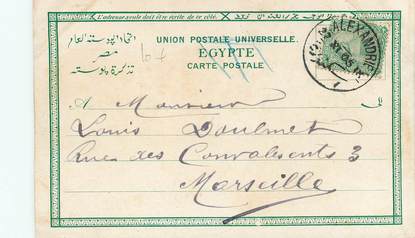 L'adresse seule doit être écrite de ce côté.
اتحاد البوسته العام
مصر
تذكرة بوسته
UNION POSTALE UNIVERSELLE.
ÉGYPTE
CARTE POSTALE
ALEXANDRIE
XI 05
A Monsieur الى
Louis Doulmet
Rue des Convalescents 3
Marseille